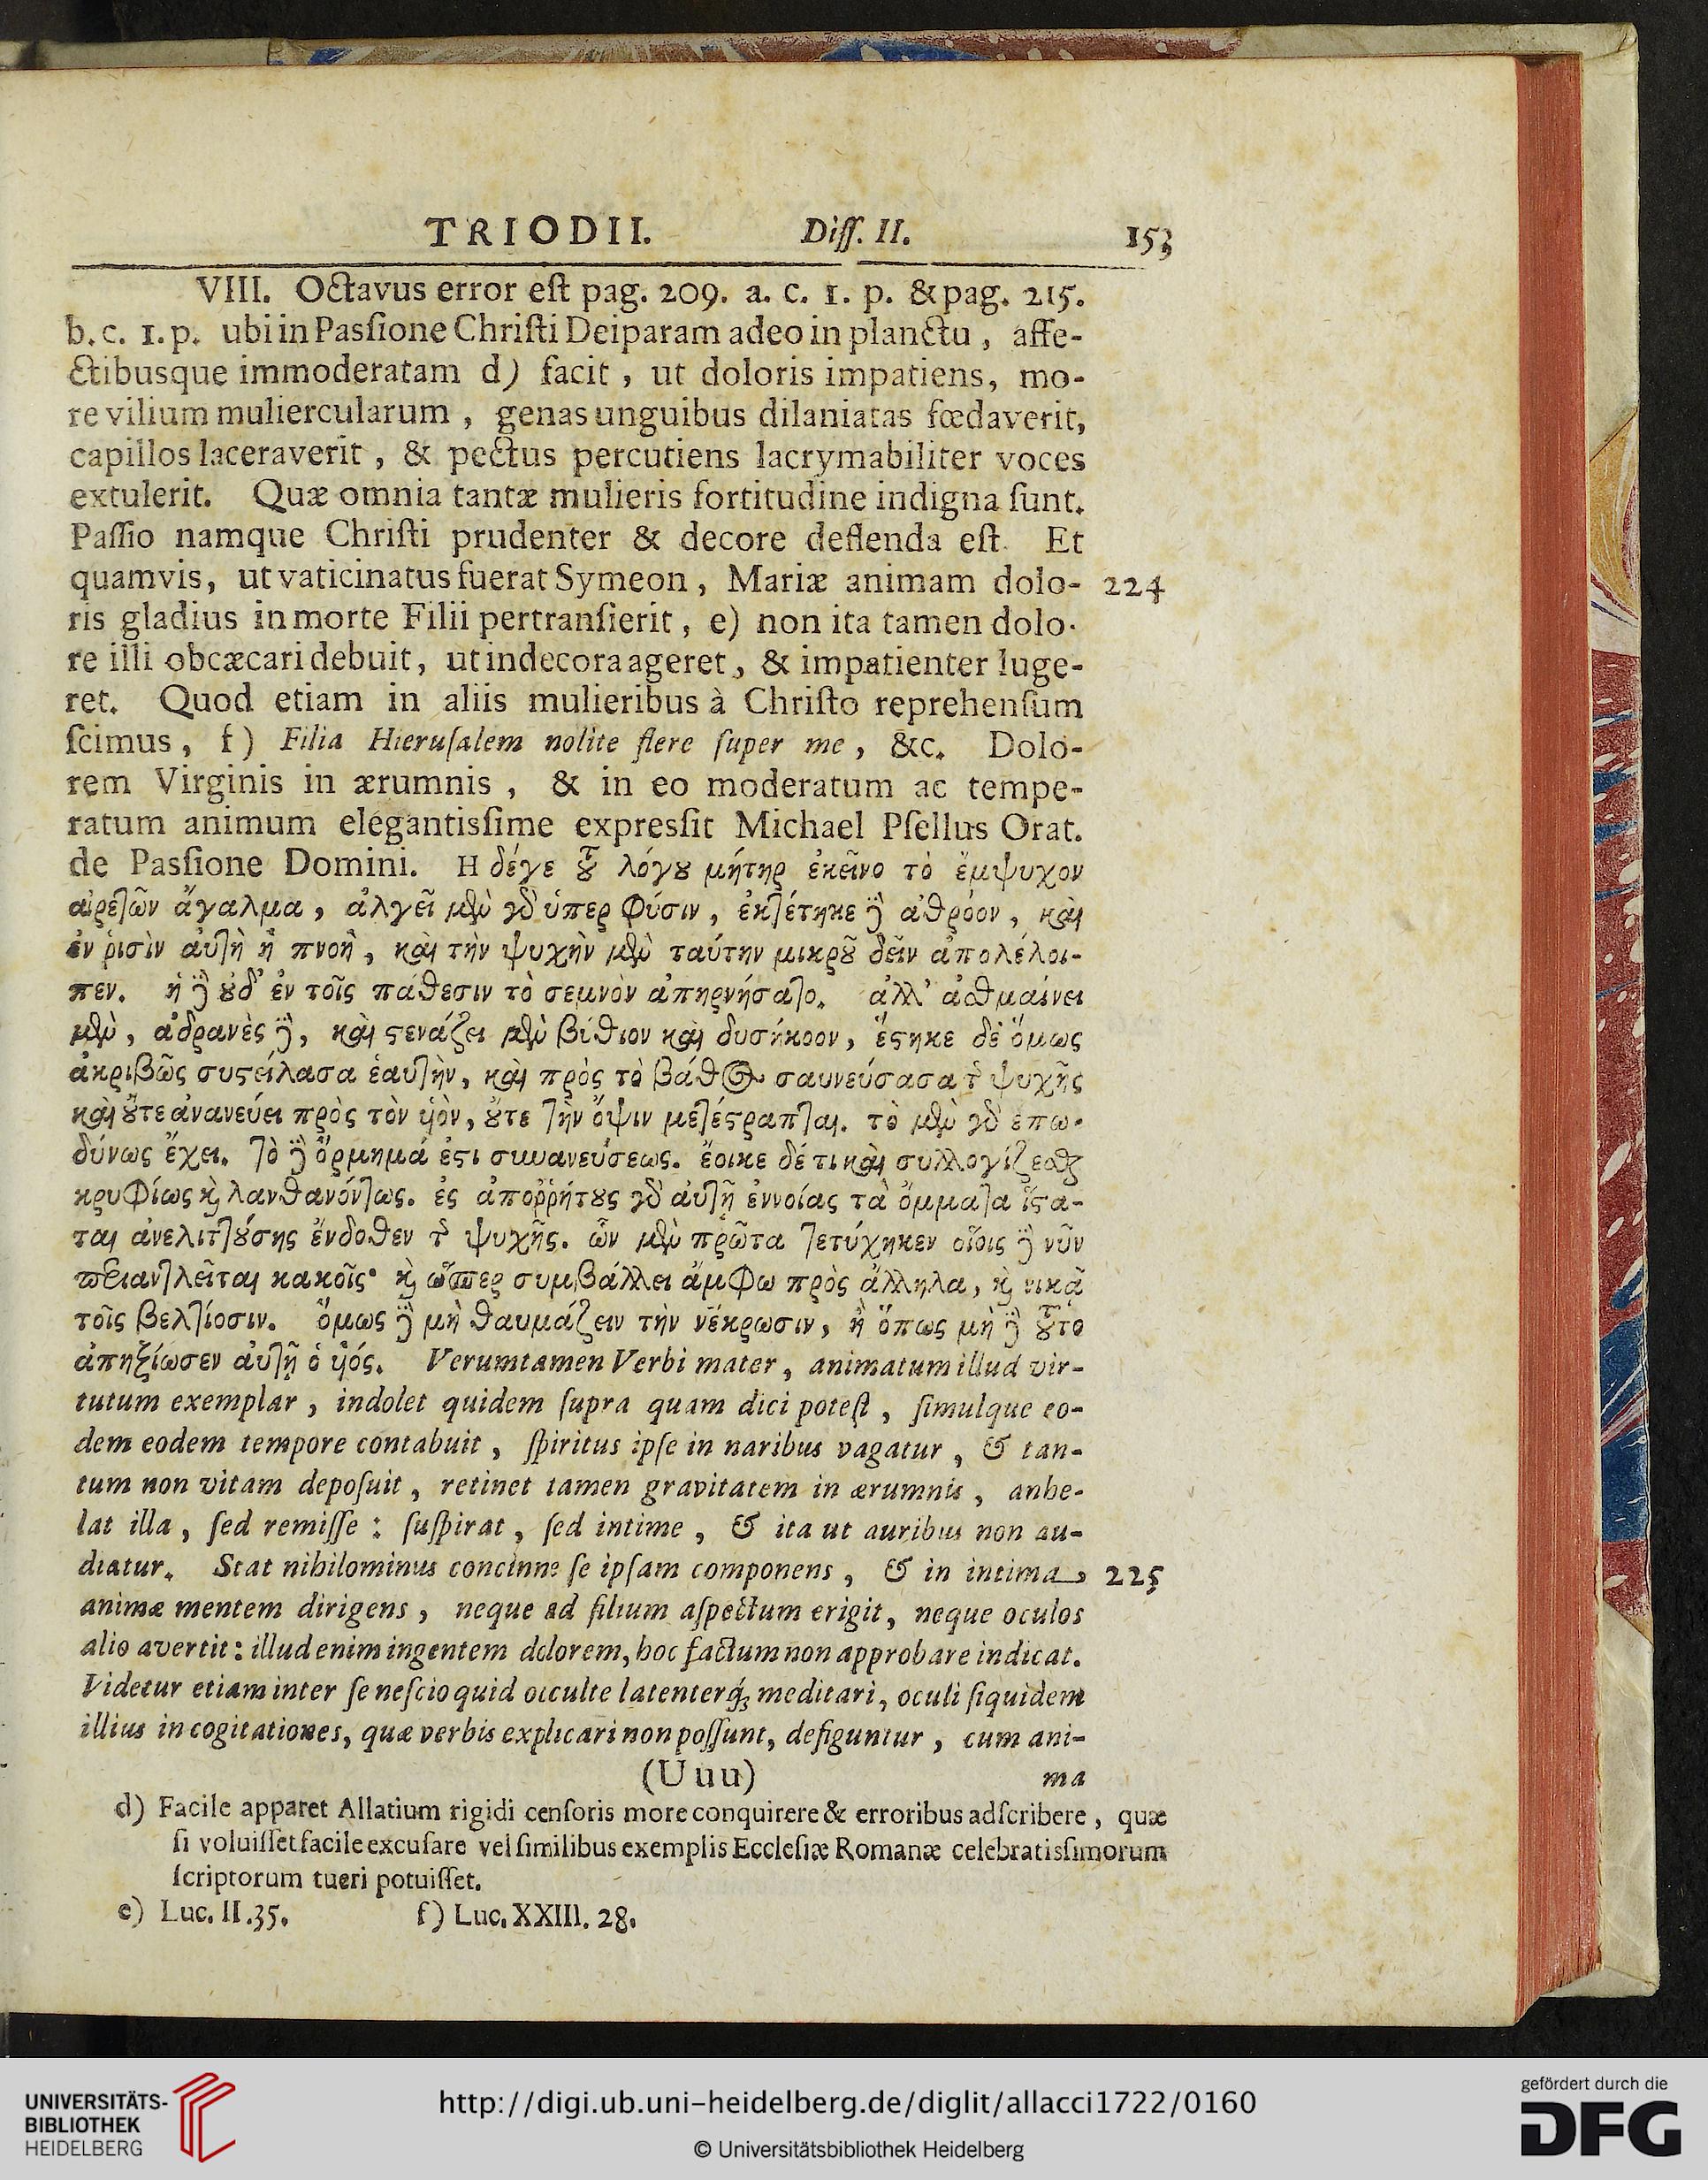 TRIODII. Diſſ. II. 153
VIII. Octavus error eſt pag. 209. a. c. 1. p. & pag. 215.
b. c. 1. p. ubi in Pasſione Chriſti Deiparam adeo in planctu, affe-
ctibusque immoderatam d) facit, ut doloris impatiens, mo-
re vilium muliercularum, genas unguibus dilaniatas fœdaverit,
capillos laceraverit, & pectus percutiens lacrymabiliter voces
extulerit. Quæ omnia tantæ mulieris fortitudine indigna ſunt.
Paſſio namque Chriſti prudenter & decore deflenda eſt. Et
quamvis, ut vaticinatus fuerat Symeon, Mariæ animam dolo- 224
ris gladius in morte Filii pertranſierit, e) non ita tamen dolo-
re illi obcæcari debuit, ut indecora ageret, & impatienter luge-
ret. Quod etiam in aliis mulieribus à Chriſto reprehenſum
ſcimus, f) Filia Hieruſalem nolite flere ſuper me, &c. Dolo-
rem Virginis in ærumnis, & in eo moderatum ac tempe-
ratum animum elegantisſime expresſit Michael Pſellus Orat.
de Pasſione Domini. Η δέγε τȣ͂ λόγȣ μήτηρ ἐκεῖνο τὸ ἔμψυχον
αἰρετῶν ἄγαλμα, ἀλγεῖ μὲν γδ ὑπερ φύσιν, ἐκτέτηκε ἢ ἀθρόον, καὶ
ἐν ῥισὶν ἀυτὴ ἡ πνοὴ, καὶ τὴν ψυχὴν μὲν ταύτην μικρȣ͂ δεῖν ἀπολέλοι-
πεν. ἡ ἢ ȣδ' ἐν τοῖς πάθεσιν τὸ σεμνὸν ἀπηρνήσατο. ἀλλ' ἀσθμαίνει
μὲν, ἀδρανὲς ἢ, καὶ ϛενάζει μὲν βύθιον καὶ δυσήκοον, ἕϛηκε δὲ ὅμως
ἀκριβῶς συϛείλασα ἑαυτὴν, καὶ πρὸς τὸ βάθος σαυνεύσασα τ̃ ψυχῆς
καὶ ȣ̓́τε ἀνανεύει πρὸς τὸν υἱὸν, ȣ̓́τε τὴν ὄψιν μετέϛραπται. τὸ μὲν γδ ἐπω-
δύνως ἔχει. τὸ ἢ ὅρμημά ἐϛι συνανεύσεως. ἔοικε δέ τι καὶ συλλογίζεσθ
κρυφίως κ̀ λανθανόντως. ἐς ἀποῤῥήτȣς γδ ἀυτῇ ἐννοίας τὰ ὄμματα ἵϛα-
ται ἀνελιττȣ́σης ἔνδοθεν τ̃ ψυχῆς. ὧν μὲν πρῶτα τετύχηκεν οἵοις ἢ νῦν
περιαντλεῖται κακοῖς· κ̀ ὥσπερ συμβάλλει ἄμφω πρὸς ἄλληλα, κ̀ νικᾷ
τοῖς βελτίοσιν. ὅμως ἢ μὴ θαυμάζειν τὴν νέκρωσιν, ἢ ὅπως μὴ ἢ τȣ͂το
ἀπηξίωσεν ἀυτῇ ὁ υἱός. Verumtamen Verbi mater, animatum illud vir-
tutum exemplar, indolet quidem ſupra quam dici poteſt, ſimulque eo-
dem eodem tempore contabuit, ſpiritus ipſe in naribus vagatur, & tan-
tum non vitam depoſuit, retinet tamen gravitatem in ærumnis, anhe-
lat illa, ſed remiſſe: ſuſpirat, ſed intime, & ita ut auribus non au-
diatur. Stat nihilominus concinne ſe ipſam componens, & in intima 225
animæ mentem dirigens, neque ad filium aſpectum erigit, neque oculos
alio avertit: illud enim ingentem dolorem, hoc factum non approbare indicat.
Videtur etiam inter ſe neſcio quid occulte latenterq́; meditari, oculi ſiquidem
illius in cogitationes, quæ verbis explicari non poſſunt, defiguntur, cum ani-
(Uuu) ma
d) Facile apparet Allatium rigidi cenſoris more conquirere & erroribus adſcribere, quæ
ſi voluiſſet facile excuſare vel ſimilibus exemplis Eccleſiæ Romanæ celebratisſimorum
ſcriptorum tueri potuiſſet.
e) Luc. II. 35. f) Luc. XXIII. 28.
UNIVERSITÄTS-
BIBLIOTHEK
HEIDELBERG
http://digi.ub.uni-heidelberg.de/diglit/allacci1722/0160
© Universitätsbibliothek Heidelberg
gefördert durch die
DFG